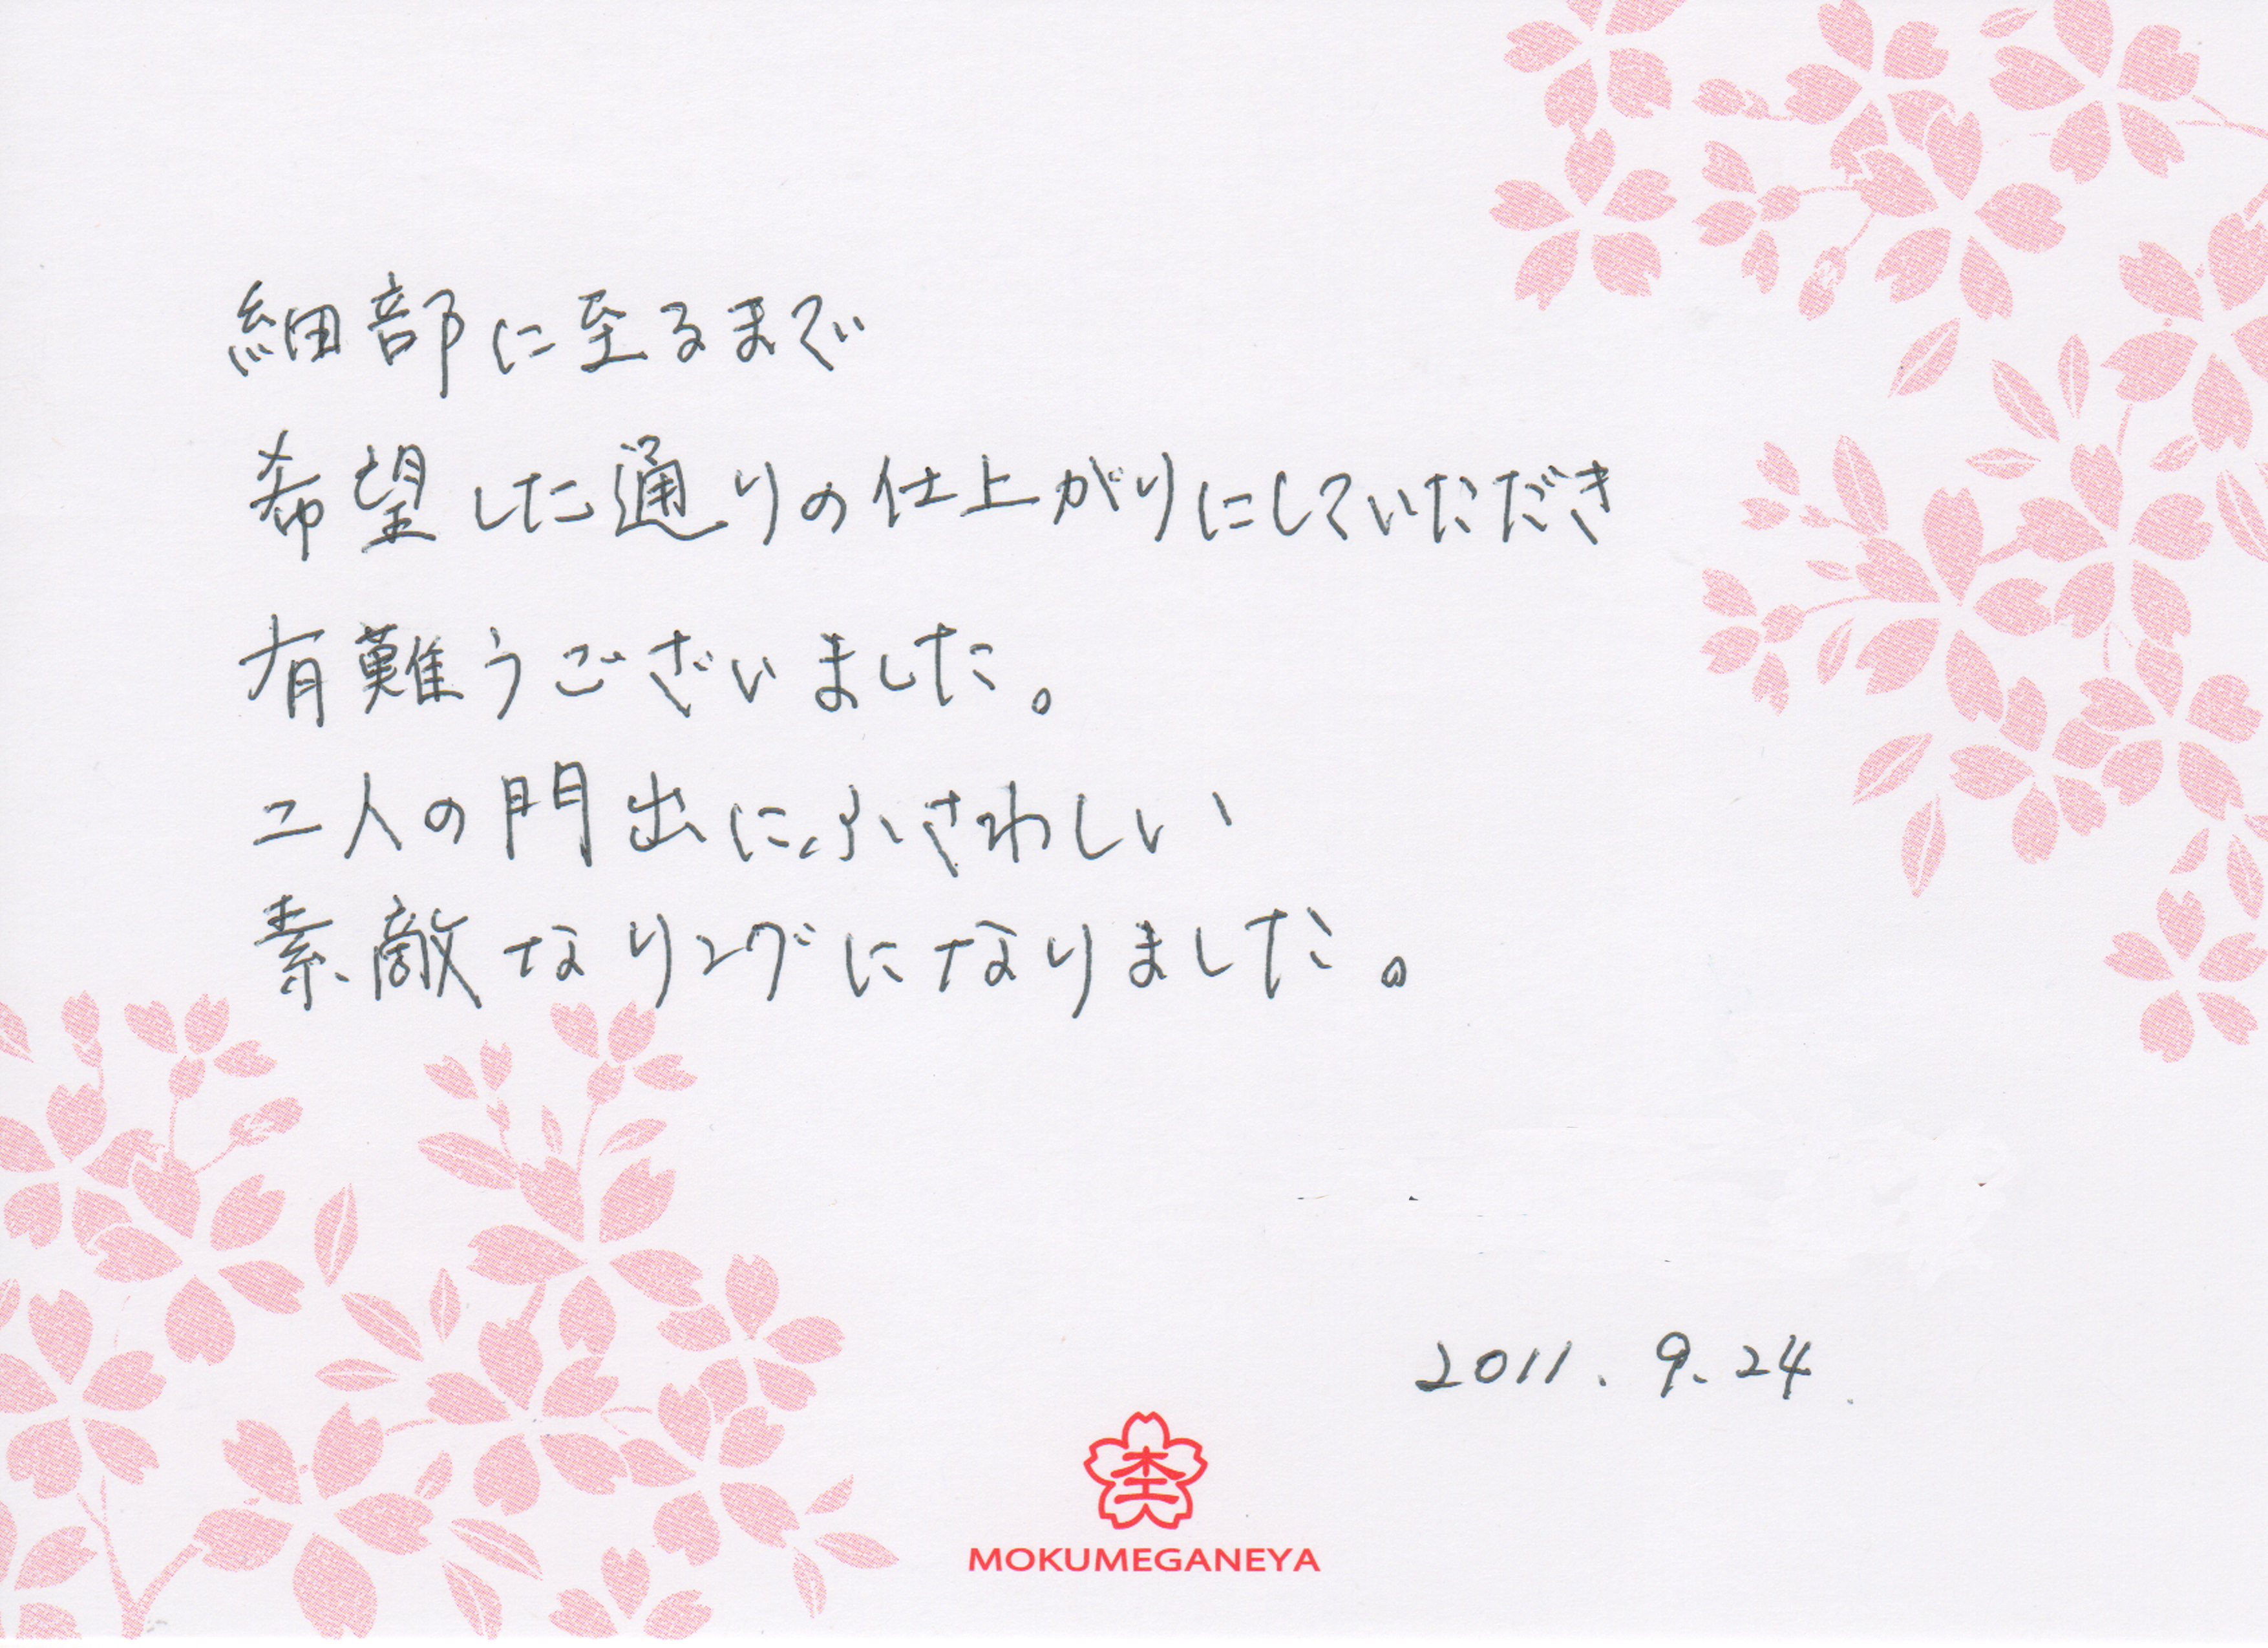 細部に至るまで
希望した通りの仕上がりにしていただき
有難うございました。
二人の門出にふさわしい
素敵なリングになりました。
2011.9.24
杢
MOKUMEGANEYA